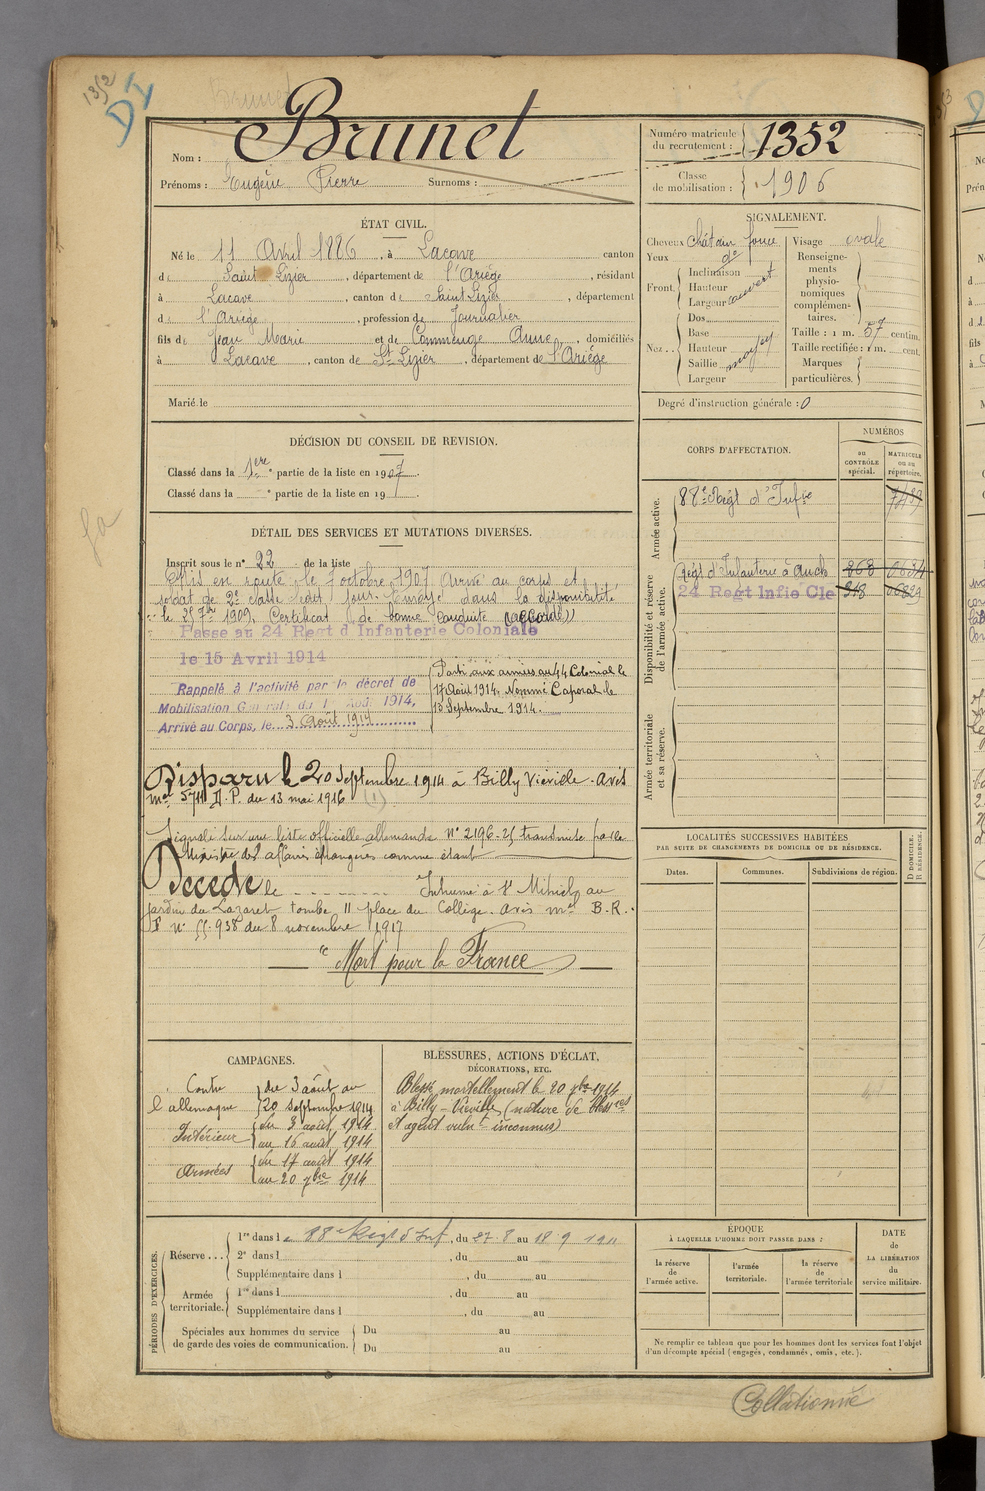 1352
D I
Nom : Brunet
Prénoms : Eugène Pierre Surnoms :
Numéro matricule du recrutement : 1352
Classe de mobilisation : 1906
ÉTAT CIVIL.
Né le 11 Avril 1886, à Lacave canton
de Saint Lizier, département de l'Ariège, résidant
à Lacave, canton de Saint Lizier, département
de l'Ariège, profession de Journalier
fils de Jean Marie et de Commenge Anne, domiciliés
à Lacave, canton de St Lizier, département de l'Ariège
Marié le
SIGNALEMENT.
Cheveux châtain foncé
Yeux do
Front. Inclinaison
Hauteur
Largeur couvert
Nez.. Dos
Base
Hauteur
Saillie moyen
Largeur
Visage ovale
Renseignements physionomiques complémentaires.
Taille : 1 m. 57 centim.
Taille rectifiée : 1 m. cent.
Marques particulières.
Degré d'instruction générale : 0
DÉCISION DU CONSEIL DE REVISION.
Classé dans la 1ere partie de la liste en 1907.
Classé dans la partie de la liste en 19 .
CORPS D'AFFECTATION.
NUMÉROS
au CONTRÔLE spécial.
MATRICULE ou au répertoire.
Armée active.
88e Régt d'Infie
Disponibilité et réserve de l'armée active.
Régt d'Infanterie à Auch 868
24 Regt Infie Cle 318 06829
Armée territoriale et sa réserve.
DÉTAIL DES SERVICES ET MUTATIONS DIVERSES.
Inscrit sous le n° 22 de la liste
Mis en route le 7 octobre 1907 Arrivé au corps et
soldat de 2e classe ledit jour. Envoyé dans la disponibilité
le 25 7bre 1909. Certificat de bonne conduite "accordé"
Passe au 24 Regt d Infanterie Coloniale
le 15 Avril 1914
Rappelé à l'activité par le décret de
Mobilisation Générale du 1 Août 1914,
Arrivé au Corps, le 3 Août 1914
Parti aux armées au 44 Colonial le
17 Août 1914. Nommé Caporal le
15 Septembre 1914.
Disparu le 20 septembre 1914 à Billy Viéville. Avis
mel 5711 D. P. du 13 mai 1916 (1)
Signalé sur une liste officielle allemande N° 2196-25 transmise par le
Ministre des affaires étrangères comme étant
Décédé le Inhumé à St Mihiel au
jardin du Lazaret tombe 11 place du Collège. Avis mel B.R.
F n° 55.938 du 8 novembre 1917
"Mort pour la France"
LOCALITÉS SUCCESSIVES HABITÉES
PAR SUITE DE CHANGEMENTS DE DOMICILE OU DE RÉSIDENCE.
Dates.
Communes.
Subdivisions de région.
D DOMICILE. R RÉSIDENCE.
CAMPAGNES.
Contre l'allemagne du 3 août au 20 septembre 1914
Intérieur du 3 août 1914 au 16 août 1914
Armées du 17 août 1914 au 20 7bre 1914
BLESSURES, ACTIONS D'ÉCLAT,
DÉCORATIONS, ETC.
Blessé mortellement le 20 7bre 1914
à Billy-Viéville (nature de blessres
et agent vulnt inconnus)
PÉRIODES D'EXERCICES.
Réserve... 1re dans le 88e Régt d'Inf, du 27-8 au 18 9 1911
2e dans l , du au
Supplémentaire dans l , du au
Armée territoriale. 1re dans l , du au
Supplémentaire dans l , du au
Spéciales aux hommes du service de garde des voies de communication. Du au
Du au
ÉPOQUE
À LAQUELLE L'HOMME DOIT PASSER DANS :
la réserve de l'armée active.
l'armée territoriale.
la réserve de l'armée territoriale
DATE de LA LIBÉRATION du service militaire.
Ne remplir ce tableau que pour les hommes dont les services font l'objet
d'un décompte spécial (engagés, condamnés, omis, etc.).
Collationné